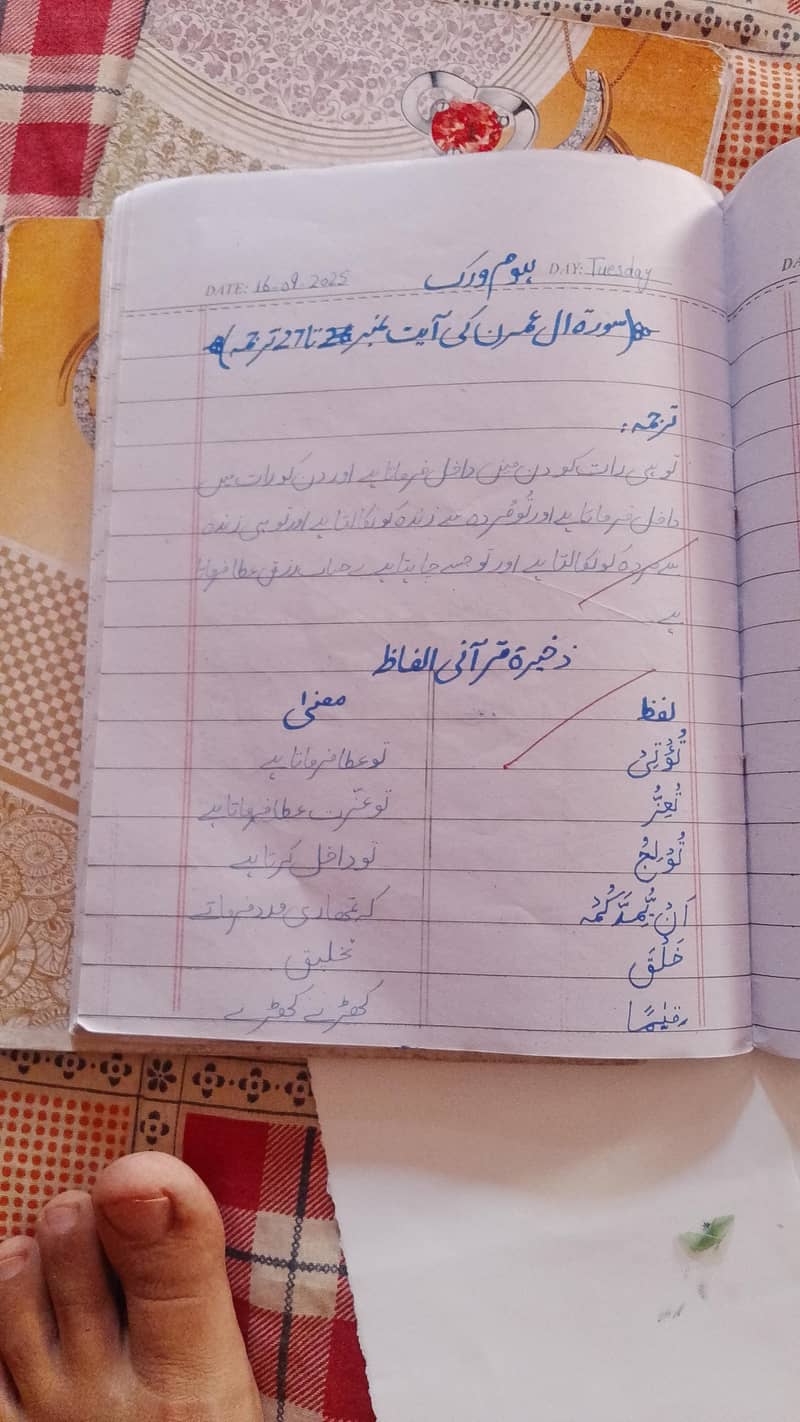 DATE: 16-09-2025 ہوم ورک DAY: Tuesday
(سورۃ ال عمرن کی آیت نمبر 26 تا 27 ترجمہ)
ترجمہ:
تو ہی رات کو دن میں داخل فرماتا ہے اور دن کو رات میں
داخل فرماتا ہے اور تُو مُردہ سے زندہ کو نکالتا ہے اور تو ہی زندہ
سے مردہ کو نکالتا ہے اور تو جسے چاہتا ہے بے حساب رزق عطا فرماتا
ہے
ذخیرۃ قرآنی الفاظ
لفظ معنیٰ
تُؤْتِیْ تو عطا فرماتا ہے
تُعِزُّ تو عزّت عطا فرماتا ہے
تُوْلِجُ تو داخل کرتا ہے
اَنْ یُّمِدَّکُمْ کہ تمھاری مدد فرمائے
خَلْقَ تخلیق
قیٰمًا کھڑے کھڑے
DA